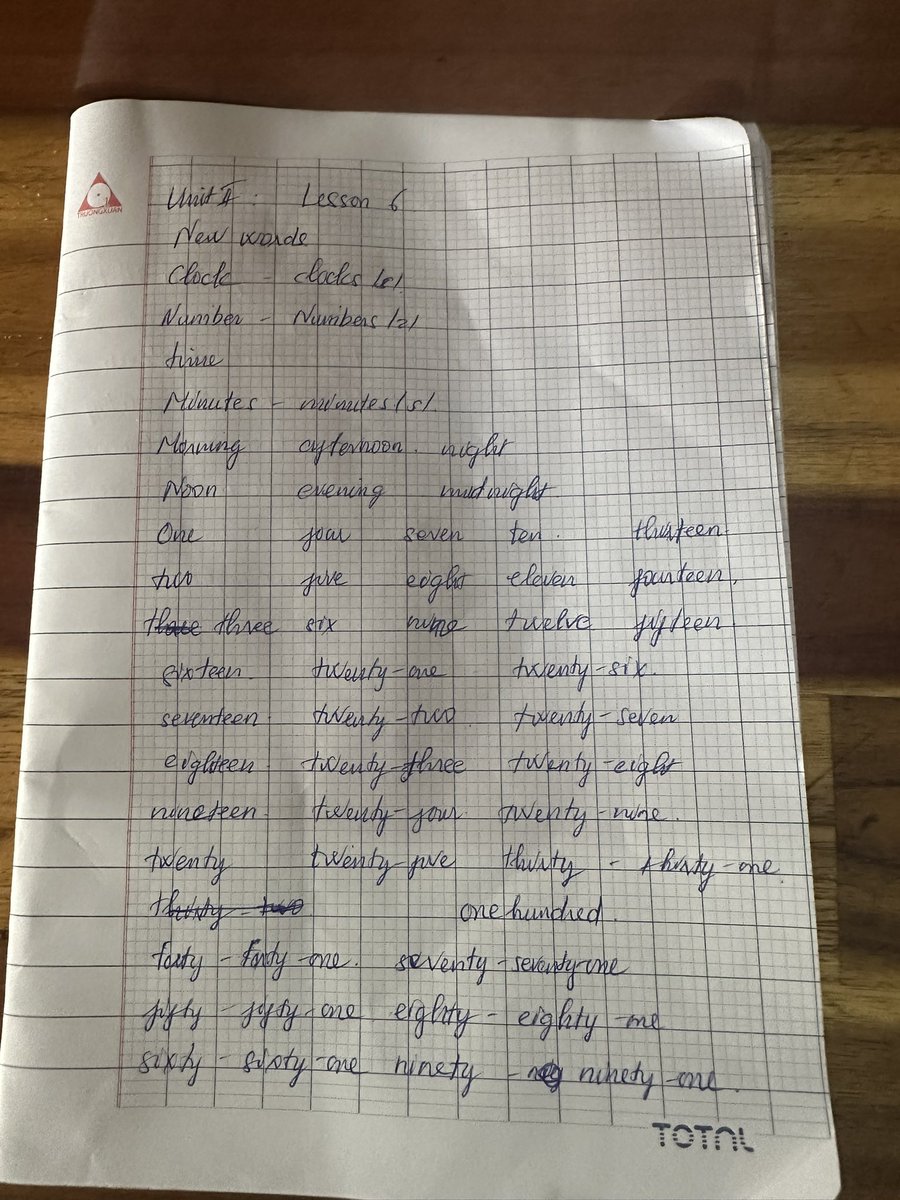 TRUONGXUAN
Unit II : Lesson 6
New words
Clock - clocks /s/
Number - Numbers /z/
time
Minutes - minutes /s/.
Morning afternoon. night
Noon evening midnight
One four seven ten. thirteen.
two five eight eleven fourteen.
three three six nine twelve fifteen
sixteen. twenty-one twenty-six.
seventeen. twenty-two twenty-seven
eighteen. twenty-three twenty-eight
nineteen. twenty-four. twenty-nine.
twenty twenty-five thirty - thirty-one.
thirty-two one hundred.
forty - forty-one. seventy - seventy-one
fifty - fifty-one eighty - eighty-one
sixty - sixty-one ninety - ninety-one.
TOTAL